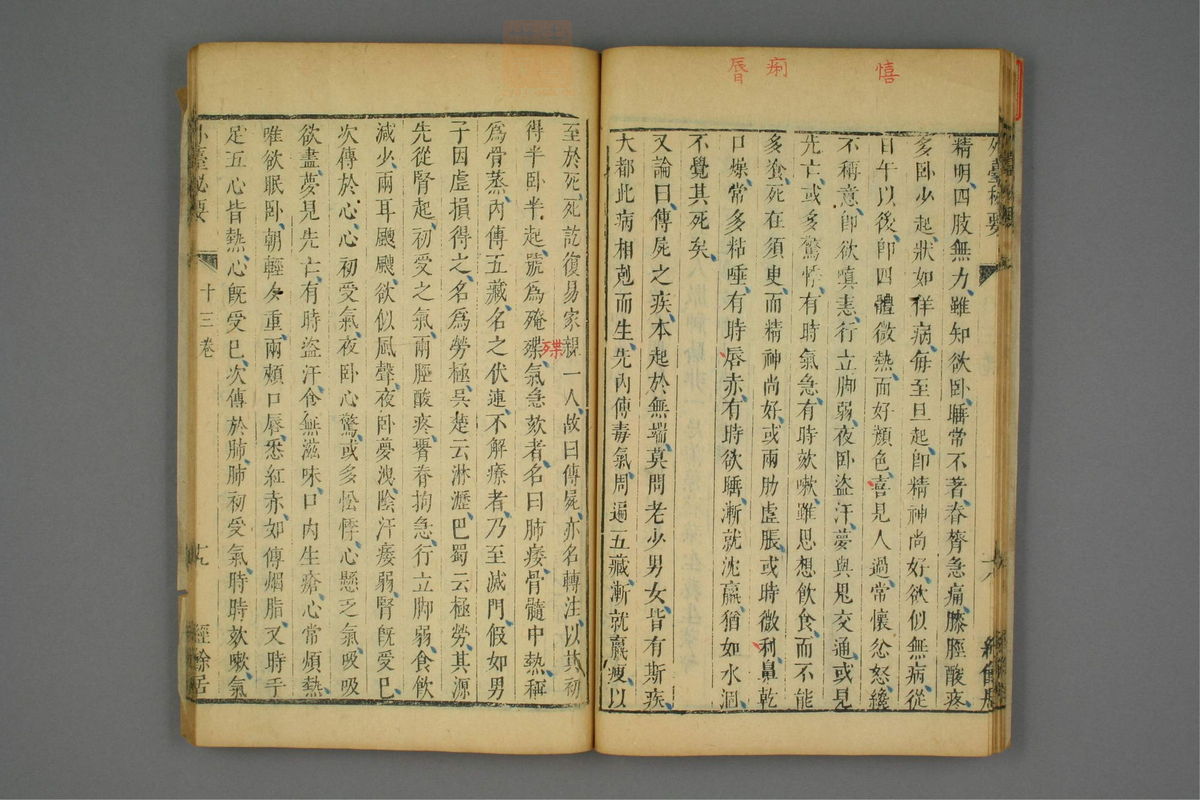 慔 痢 脣
精明四肢無力雖知欲卧睡常不著脊膂急痛膝脛酸疼
多卧少起狀如佯病每至旦起卽精神尚好欲似無病從
日午以後卽四體微熱面好顏色喜見人過常懷忿怒纔
不稱意卽欲嗔恚行立脚弱夜卧盜汗夢與鬼交通或見
先亡或多驚悸有時氣急有時欬嗽雖思想飲食而不能
多飡死在須臾而精神尚好或兩肋虛脹或時微利鼻乾
口燥常多粘唾有時唇赤有時欲睡漸就沈羸猶如水涸
不覺其死矣
又論曰傳屍之疾本起於無端莫問老少男女皆有斯疾
大都此病相剋而生先內傳毒氣周遍五藏漸就羸瘦以
至於死死訖復易家親一人故曰傳屍亦名轉注以其初
得半卧半起號爲殗殜氣急欬者名曰肺痿骨髓中熱稱
殜
爲骨蒸內傳五藏名之伏連不解療者乃至滅門假如男
子因虛損得之名爲勞極吳楚云淋瀝巴蜀云極勞其源
先從腎起初受之氣兩脛酸疼腰脊拘急行立脚弱食飲
減少兩耳颼颼欲似風聲夜卧夢洩陰汗痿弱腎旣受已
次傳於心心初受氣夜卧心驚或多忪悸心懸乏氣吸吸
欲盡夢見先亡有時盜汗食無滋味口內生瘡心常煩熱
唯欲眠卧朝輕夕重兩頰口唇悉紅赤如傅胭脂又時手
足五心皆熱心旣受已次傳於肺肺初受氣時時欬嗽氣
外臺秘要 十三卷 十九 經餘居